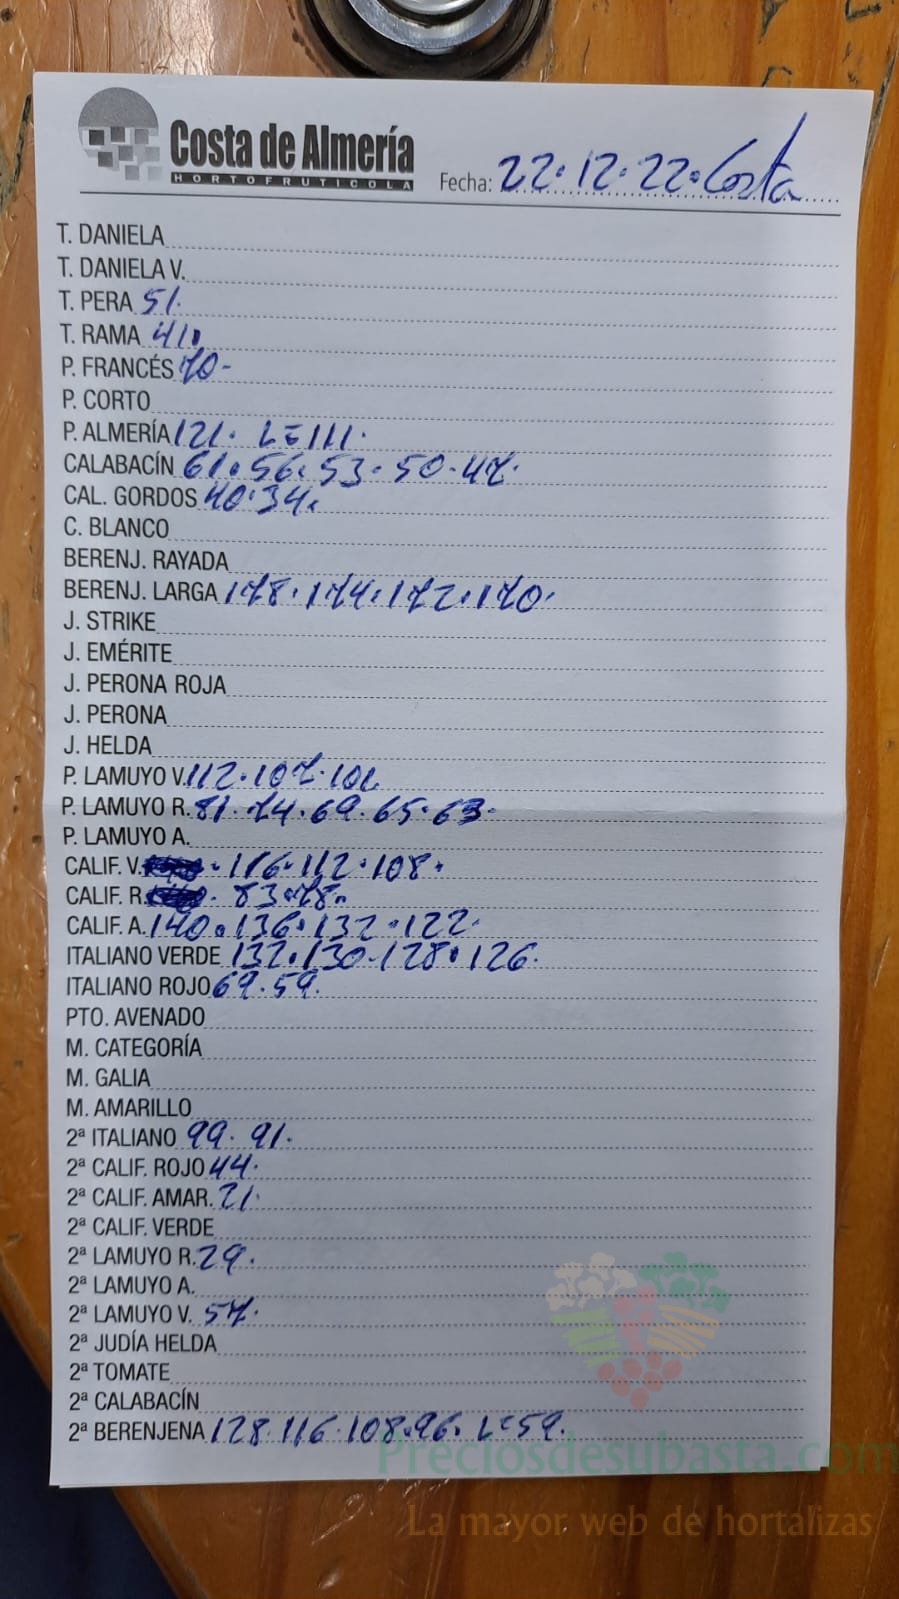 Costa de Almería
HORTOFRUTICOLA
Fecha: 22.12.22. Costa
T. DANIELA
T. DANIELA V.
T. PERA 51.
T. RAMA 41.
P. FRANCÉS 70-
P. CORTO
P. ALMERÍA 121. L=111.
CALABACÍN 61.56.53.50.47.
CAL. GORDOS 40.34.
C. BLANCO
BERENJ. RAYADA
BERENJ. LARGA 178.174.172.170.
J. STRIKE
J. EMÉRITE
J. PERONA ROJA
J. PERONA
J. HELDA
P. LAMUYO V. 112.107.101.
P. LAMUYO R. 81.74.69.65.63.
P. LAMUYO A.
CALIF. V. . 116.112.108.
CALIF. R . 83.78.
CALIF. A. 140.136.132.122.
ITALIANO VERDE 132.130-128.126.
ITALIANO ROJO 69.59.
PTO. AVENADO
M. CATEGORÍA
M. GALIA
M. AMARILLO
2ª ITALIANO 99. 91.
2ª CALIF. ROJO 44.
2ª CALIF. AMAR. 21.
2ª CALIF. VERDE
2ª LAMUYO R. 29.
2ª LAMUYO A.
2ª LAMUYO V. 57.
2ª JUDÍA HELDA
2ª TOMATE
2ª CALABACÍN
2ª BERENJENA 128.116.108.96. L=59.
Preciosdesubasta.com
La mayor web de hortalizas